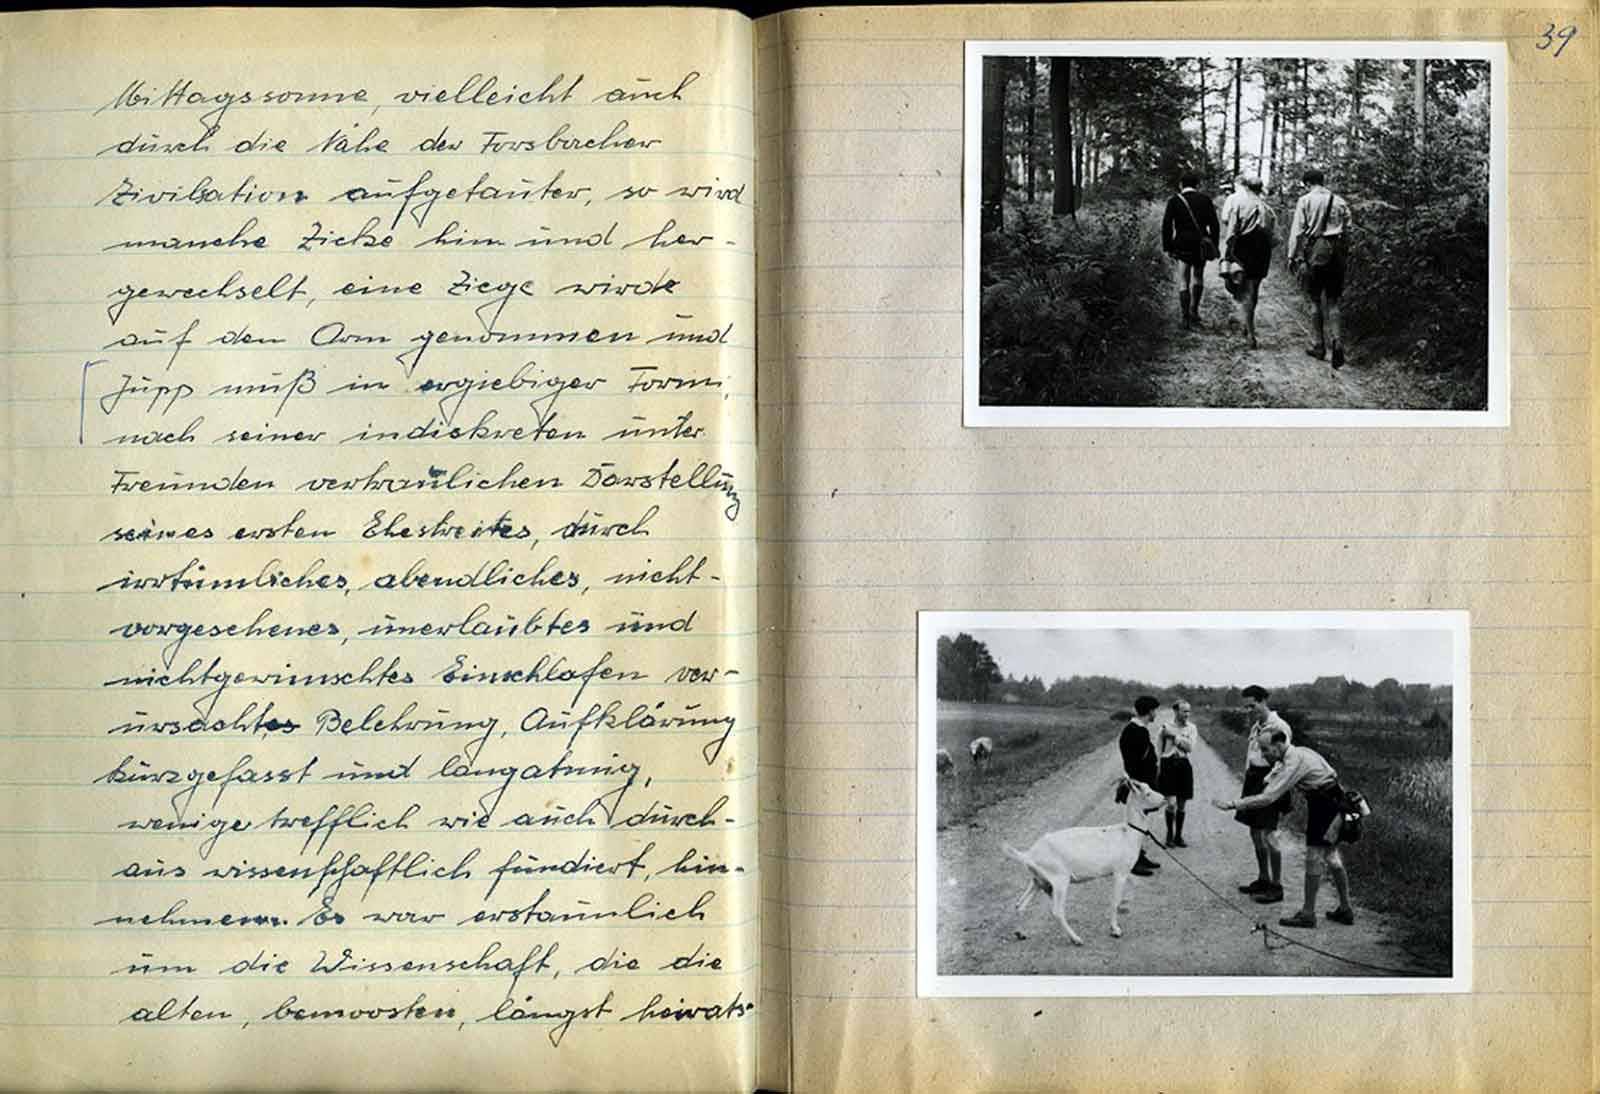 Mittagssonne, vielleicht auch
durch die Nähe der Forsbacher
Zivilsation aufgetauter, so wird
manche Zicke hin und her-
gewechselt, eine Ziege wird
auf den Arm genommen und
Jupp muß in ergiebiger Form,
nach seiner indiskreten unter
Freunden vertraulichen Darstellung
seines ersten Ehestreites, durch
irrtümliches, abendliches, nicht-
vorgesehenes, unerlaubtes und
nichtgewünschtes Einschlafen ver-
ursacht Belehrung, Aufklärung
kurzgefasst und langatmig,
weniger trefflich wie auch durch-
aus wissenschaftlich fundiert, hin-
nehmen. Es war erstaunlich
um die Wissenschaft, die die
alten, bemoosten, längst heirats-
39